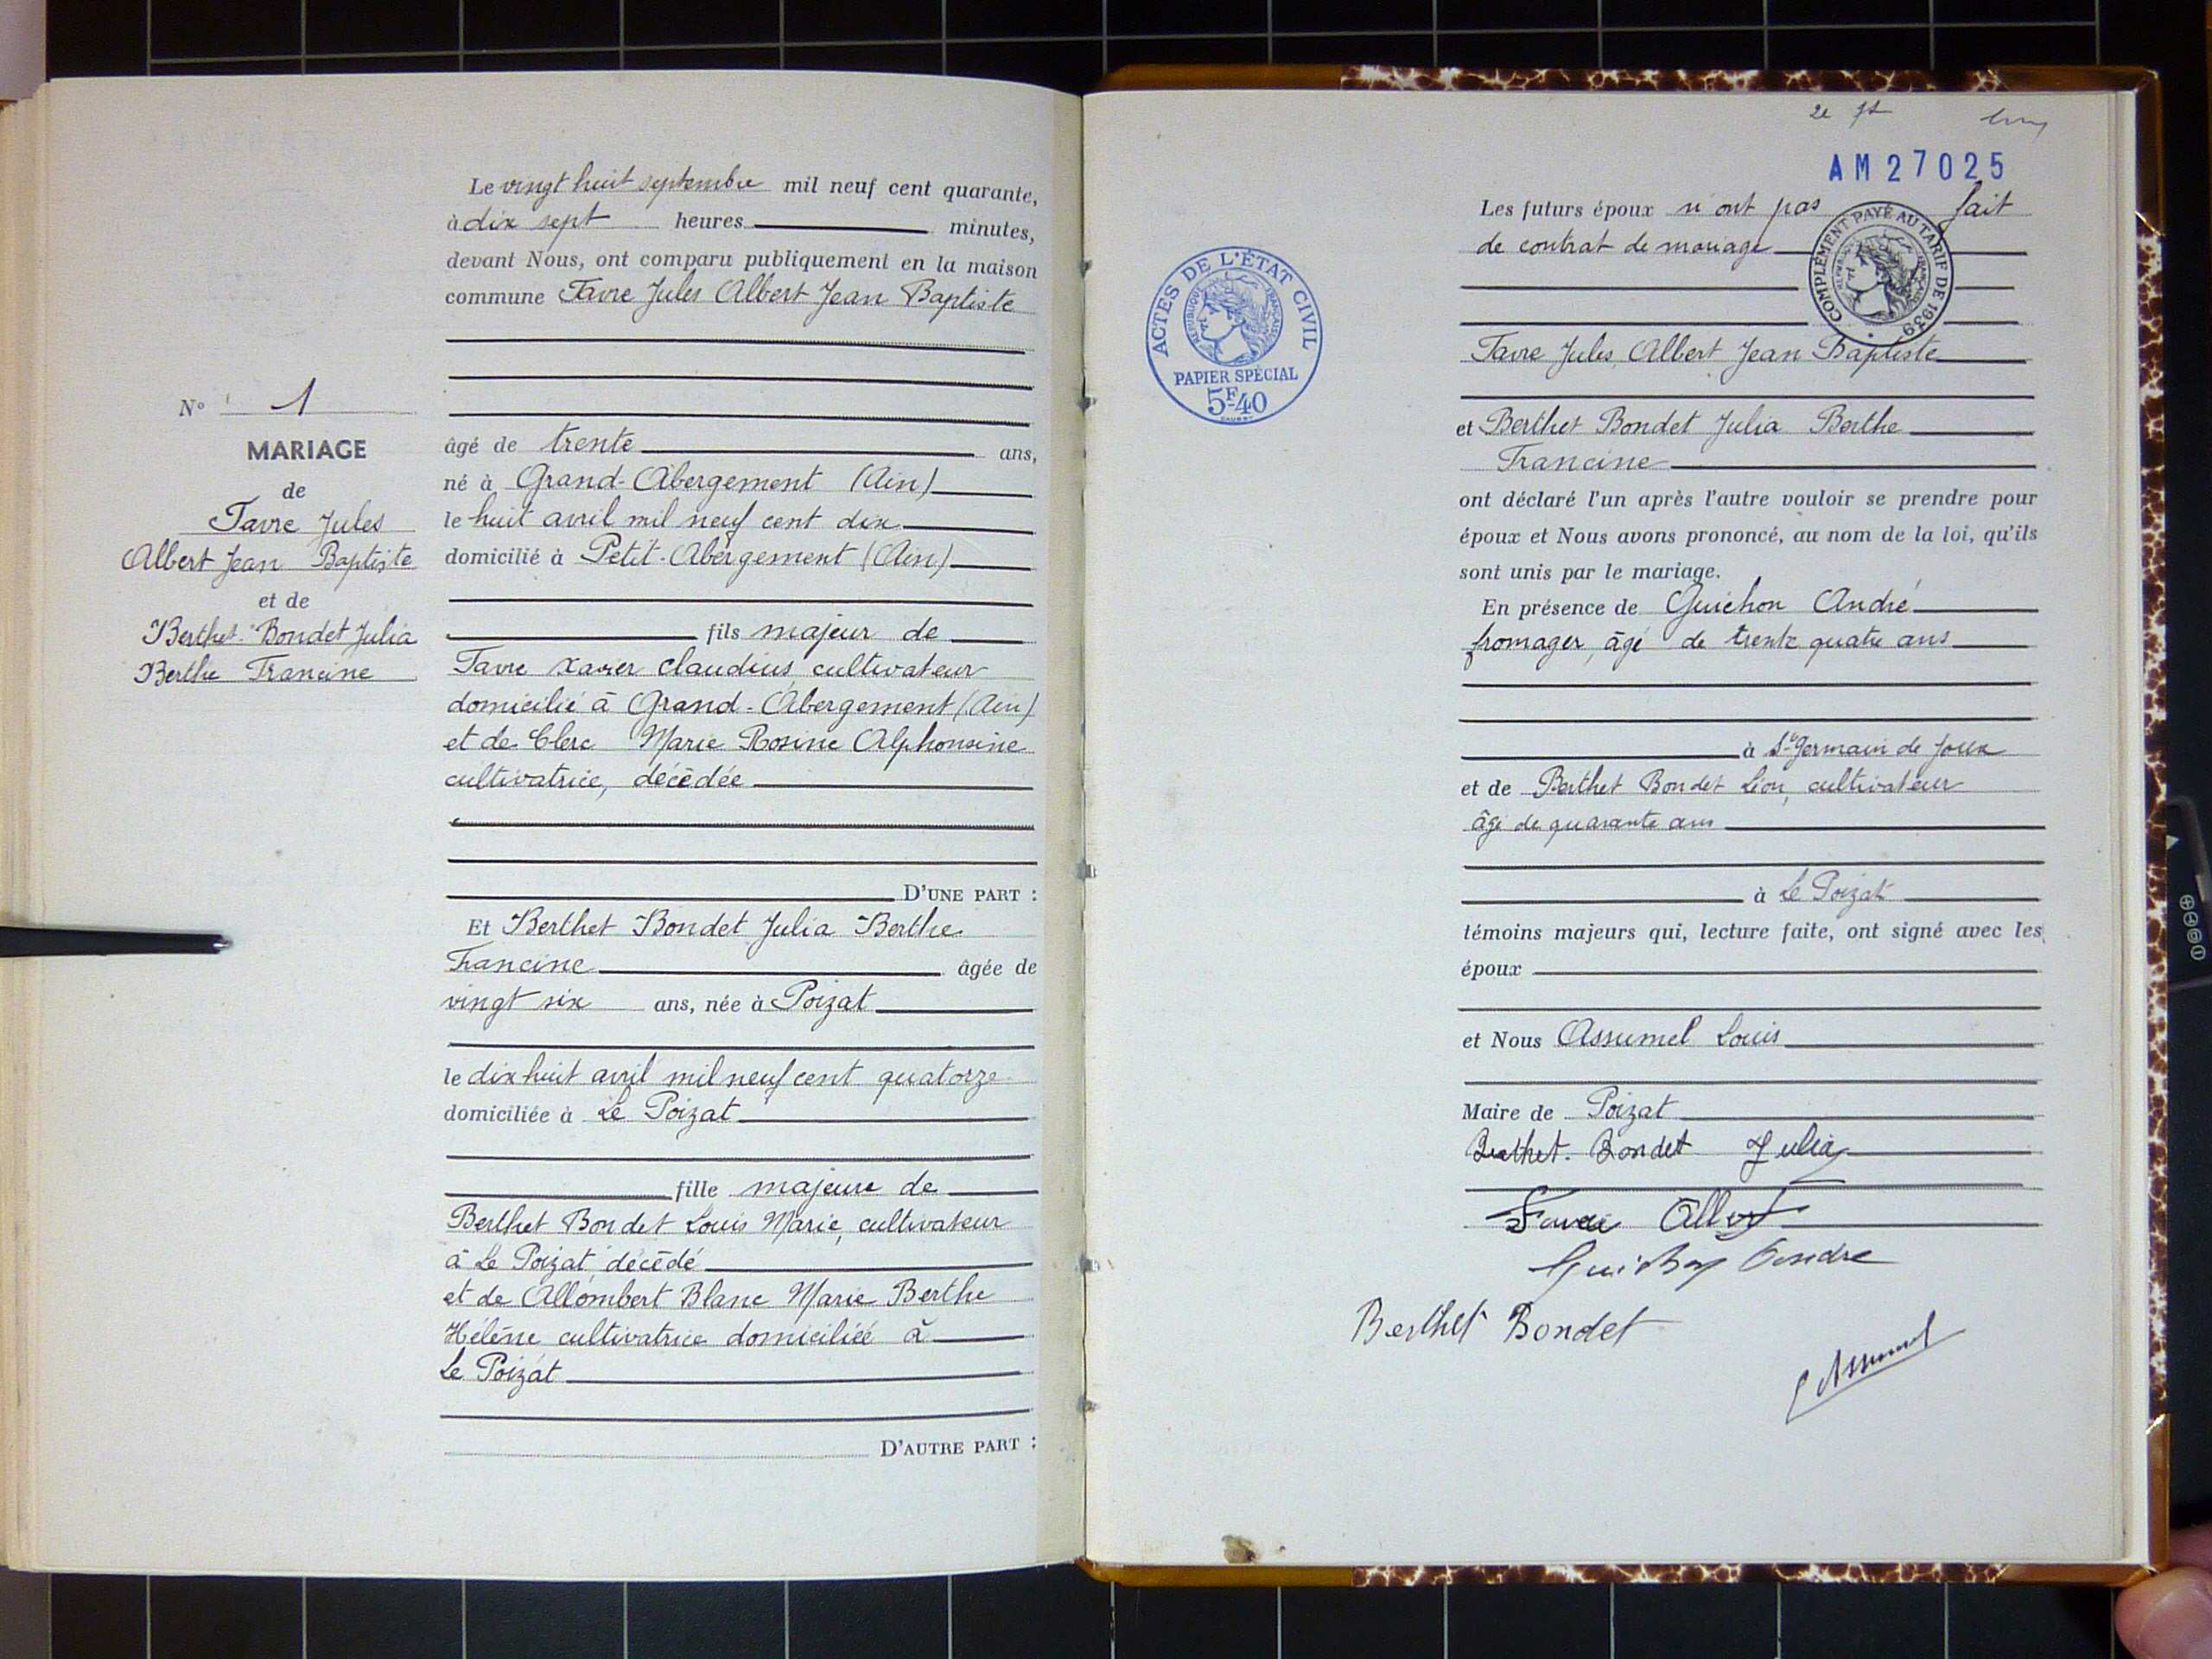 Le vingt huit septembre mil neuf cent quarante,
à dix sept heures minutes,
devant Nous, ont comparu publiquement en la maison
commune Favre Jules Albert Jean Baptiste
N° 1
MARIAGE
de
Favre Jules
Albert Jean Baptiste
et de
Berthet-Bondet Julia
Berthe Francine
âgé de trente ans,
né à Grand-Abergement (Ain)
le huit avril mil neuf cent dix
domicilié à Petit-Abergement (Ain)
fils majeur de
Favre Xavier Claudius, cultivateur
domicilié à Grand-Abergement (Ain)
et de Clerc Marie Rosine Alphonsine
cultivatrice, décédée
D'UNE PART :
Et Berthet Bondet Julia Berthe
Francine âgée de
vingt six ans, née à Poizat
le dix huit avril mil neuf cent quatorze
domiciliée à Le Poizat
fille majeure de
Berthet Bondet Louis Marie, cultivateur
à Le Poizat, décédé
et de Allombert Blanc Marie Berthe
Hélène cultivatrice domiciliée à
Le Poizat
D'AUTRE PART :
2e
AM27025
Les futurs époux n'ont pas fait
de contrat de mariage
COMPLÉMENT PAYÉ AU TARIF DE 1939
ACTES DE L'ÉTAT CIVIL
RÉPUBLIQUE FRANÇAISE
PAPIER SPÉCIAL
5F40
Favre Jules, Albert Jean Baptiste
et Berthet Bondet Julia Berthe
Francine
ont déclaré l'un après l'autre vouloir se prendre pour
époux et Nous avons prononcé, au nom de la loi, qu'ils
sont unis par le mariage.
En présence de Guichon André
fromager, âgé de trente quatre ans
à St Germain de Joux
et de Berthet Bondet Léon, cultivateur
âgé de quarante ans
à Le Poizat
témoins majeurs qui, lecture faite, ont signé avec les
époux
et Nous Assumel Louis
Maire de Poizat
Berthet-Bondet Julia
Favre Albert
Guichon Andre
Berthet Bondet
L Assumel